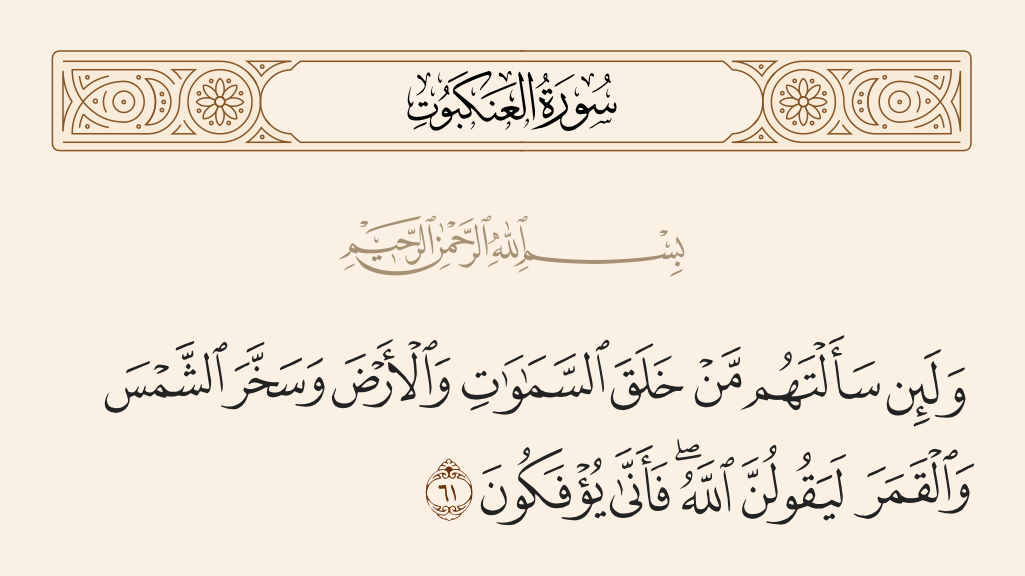 سُورَةُ العَنكَبُوتِ
بِسْمِ ٱللَّهِ ٱلرَّحْمَٰنِ ٱلرَّحِيمِ
وَلَئِن سَأَلْتَهُم مَّنْ خَلَقَ ٱلسَّمَٰوَٰتِ وَٱلْأَرْضَ وَسَخَّرَ ٱلشَّمْسَ
وَٱلْقَمَرَ لَيَقُولُنَّ ٱللَّهُ ۖ فَأَنَّىٰ يُؤْفَكُونَ ٦١